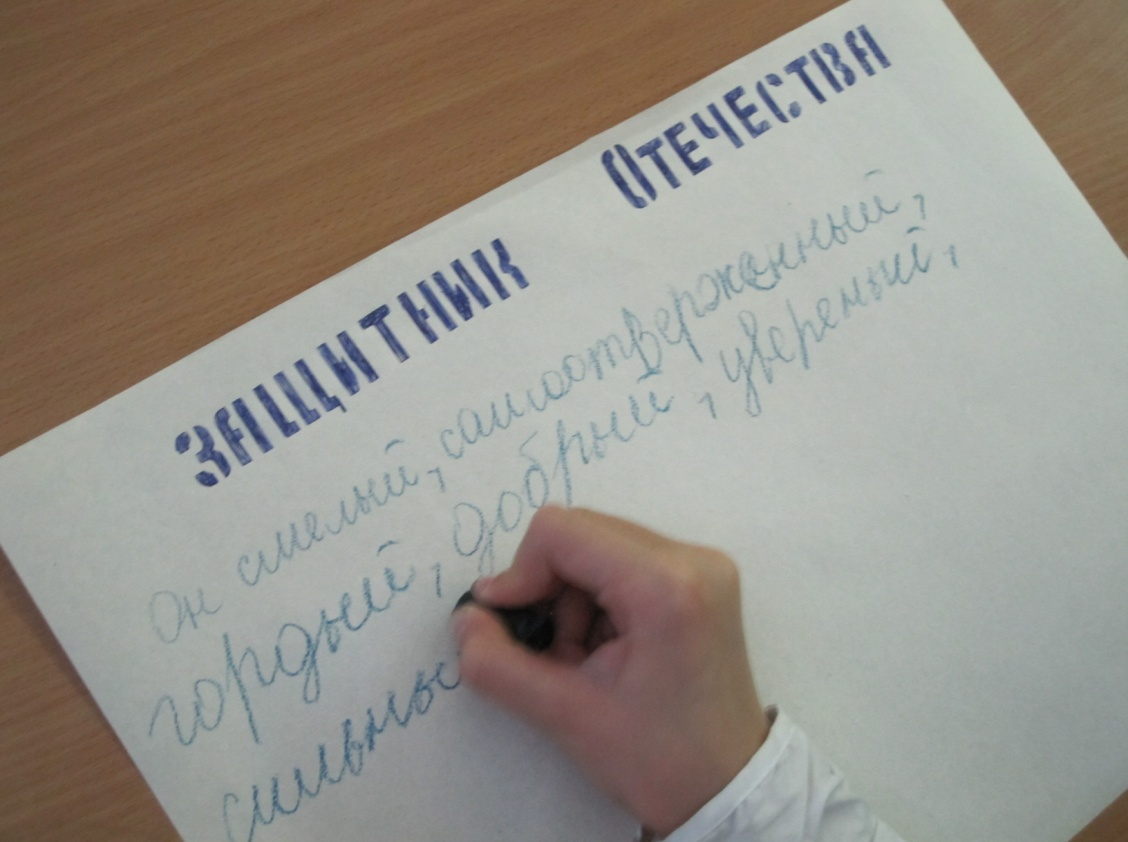 ЗАЩИТНИК ОТЕЧЕСТВА
он смелый, самоотверженный,
гордый, добрый, увереный,
сильны